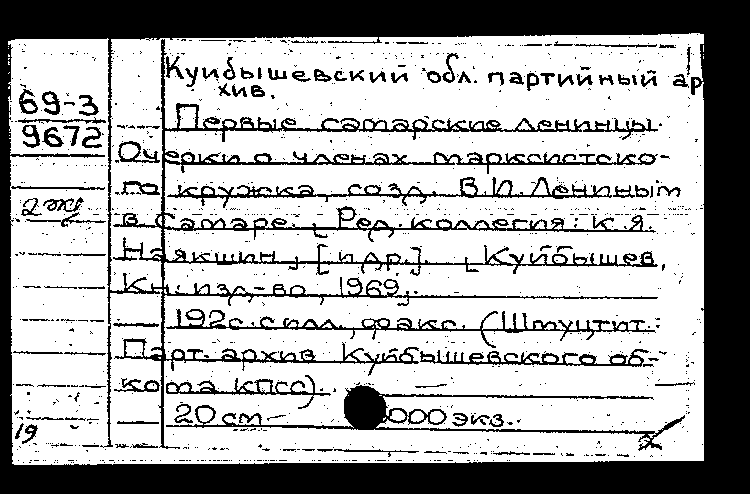 Куйбышевский обл. партийный ар
хив.
69-3
9672
Первые самарские ленинцы.
Очерки о членах марксистско-
го кружка, созд. В.И. Лениным
2 экз
в Самаре. [Ред. коллегия: К.Я.
Наякшин] [и др.]. [Куйбышев,
Кн. изд-во, 1969].
192с. с илл., факс. (Шпуцтит.:
Парт. архив Куйбышевского об-
кома КПСС).
20 см - 000 экз.
19